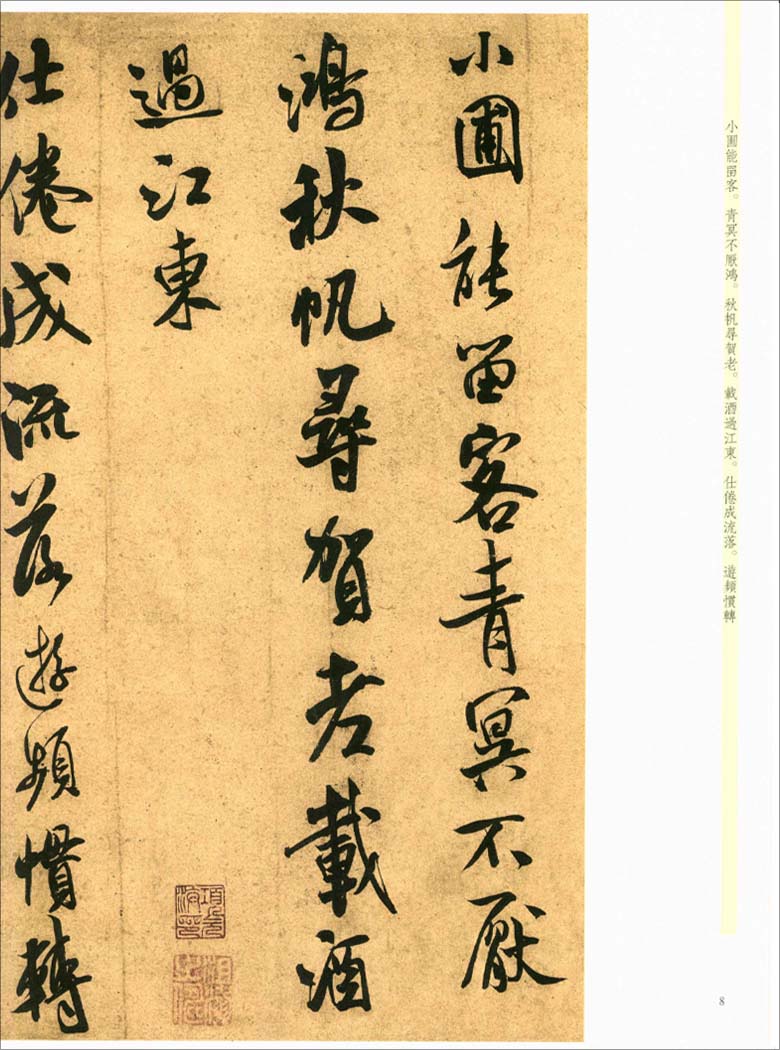 小圃能留客青冥不厭
鴻秋帆尋賀老載酒
過江東
仕倦成流落遊頻慣轉
小圃能留客。青冥不厭鴻。秋帆尋賀老。載酒過江東。仕倦成流落。遊頻慣轉
8